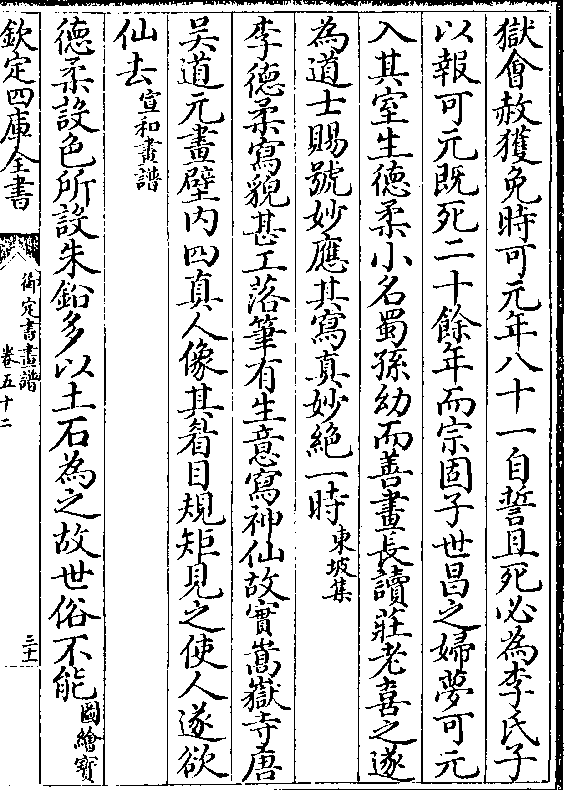 獄會赦獲免時可元年八十一自誓且死必為李氏子
以報可元既死二十餘年而宗固子世昌之婦夢可元
入其室生德柔小名蜀孫幼而善畫長讀莊老喜之遂
為道士賜號妙應其寫真妙絶一時東坡集
李德柔寫貌甚工落筆有生意寫神仙故實嵩嶽寺唐
吴道元畫壁内四真人像其眉目規矩見之使人遂欲
仙去宣和畫譜
德柔設色所設朱鉛多以土石為之故世俗不能圖繪寳
欽定四庫全書
御定書畫譜
卷五十二
三十一